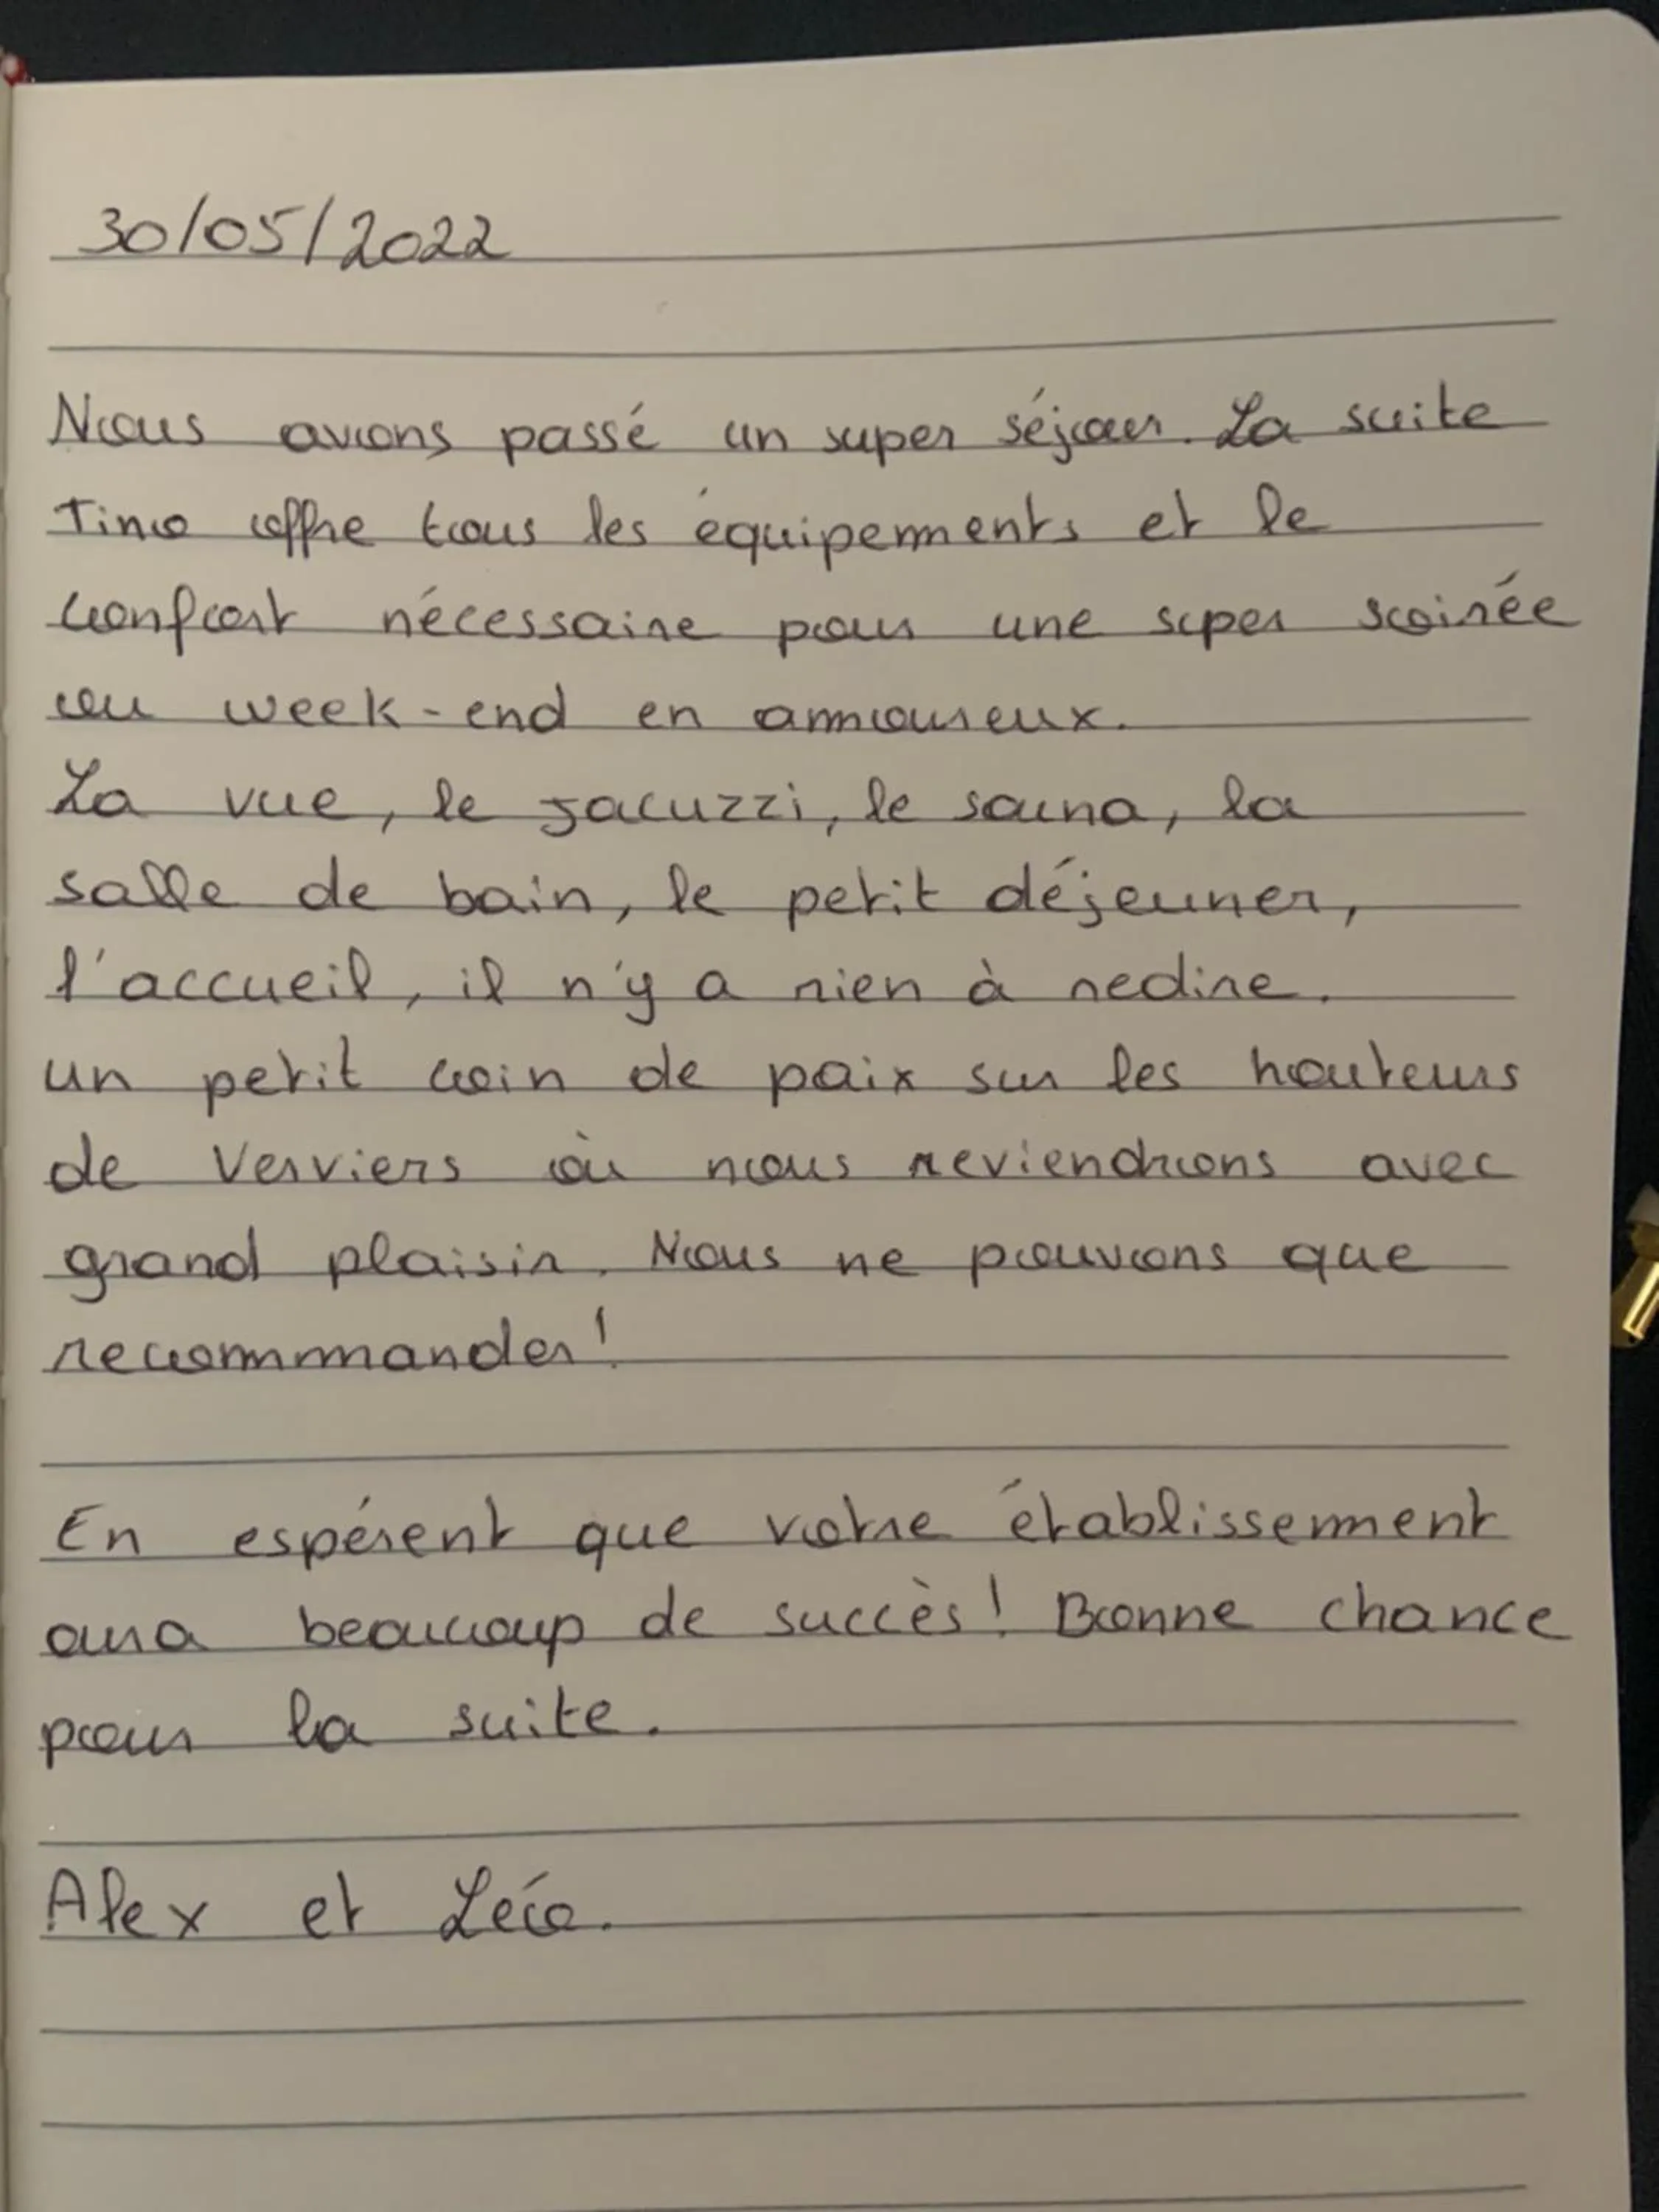 30/05/2022
Nous avons passé un super séjour. La suite
Timo offre tous les équipements et le
confort nécessaire pour une super soirée
ou week-end en amoureux.
La vue, le jacuzzi, le sauna, la
salle de bain, le petit déjeuner,
l'accueil, il n'y a rien à redire.
un petit coin de paix sur les hauteurs
de Verviers où nous reviendrons avec
grand plaisir. Nous ne pouvons que
recommander!
En espérent que votre établissement
aura beaucoup de succès! Bonne chance
pour la suite.
Alex et Léo.